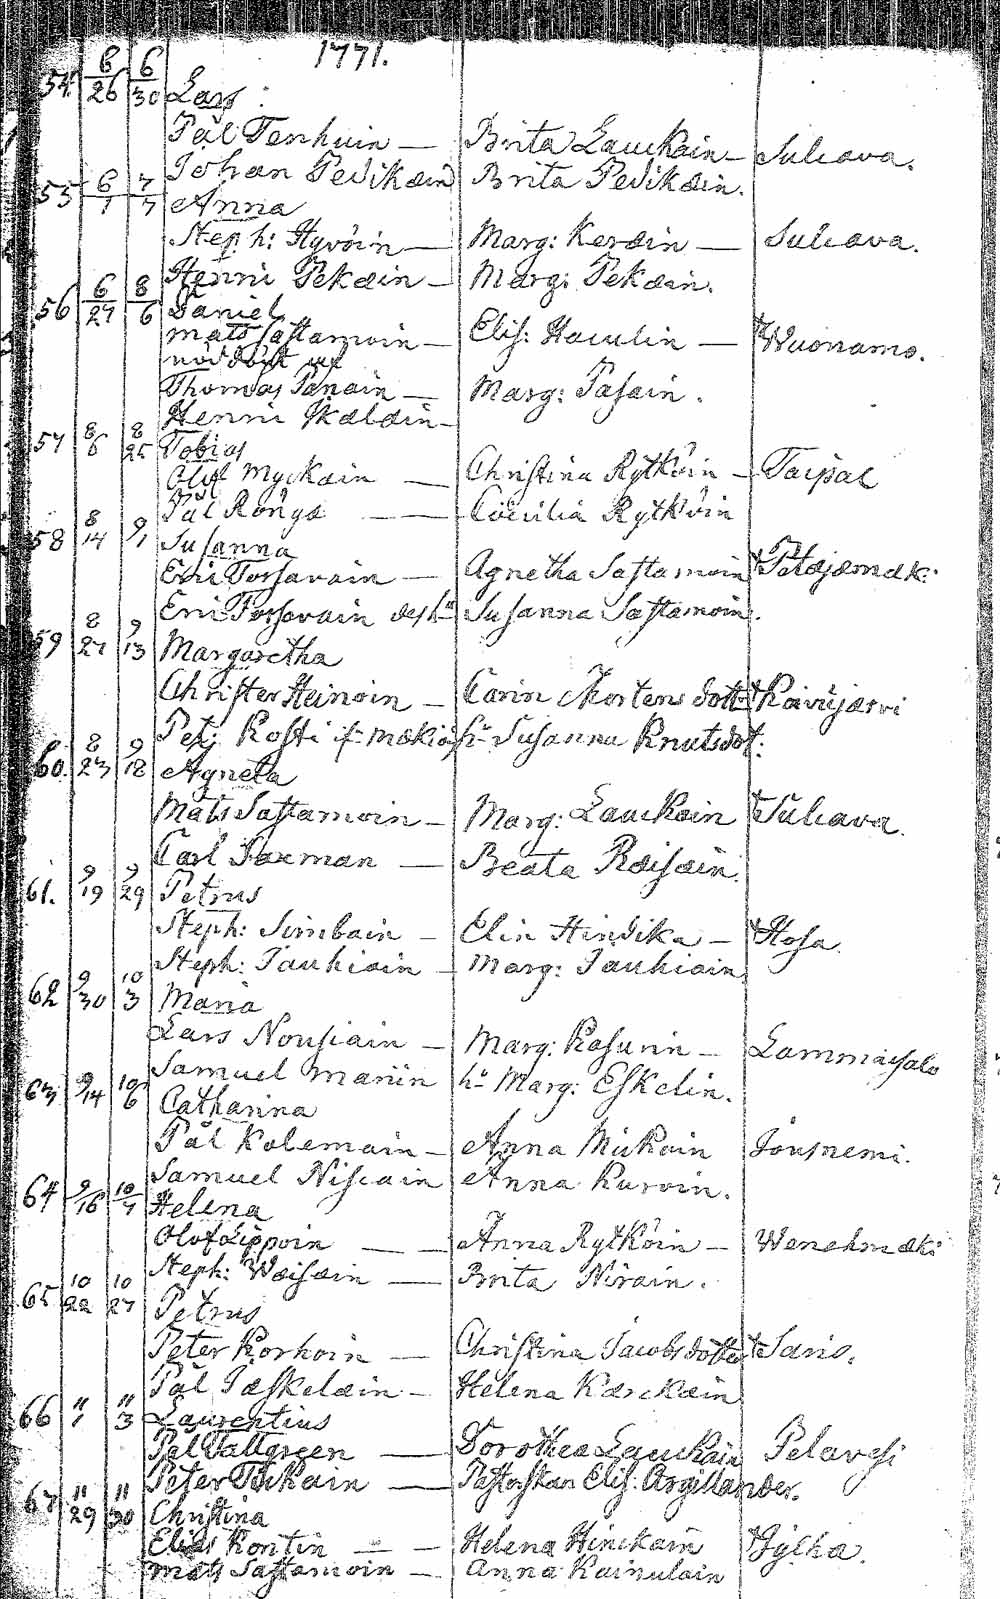 1771.
54. 6/26 6/30 Lars
Pål Tenhuin — Brita Lauckain — Sulcava.
Johan Pedikæin Brita Pedikæin.
55 6/1 7/7 Anna
Steph: Hyvöin — Marg: Keræin — Sulcava.
Henric Pekæin — Marg: Pekæin.
56 6/27 8/6 Daniel
Mats Sastamoin — Elis: Haculin — Wuonamo.
nöddöpt af
Thomas Panain — Marg: Pasain.
Henric Ikælæin —
57 8/6 8/25 Tobias
Oluf Myckæin — Christina Rytköin — Taipal
Pål Rönga — — Cæcilia Rytköin
58 8/14 9/1 Susanna
Eric Torsavain — Agnetha Sastamoin Petæjæmæk:
Eric Torsavain des hu Susanna Sastamoin.
59 8/27 9/13 Margaretha
Christer Heinoin — Carin Mortensdott: Koivujærvi
Pet: Kosti if: Mækiö hu Susanna Knutsdot:
60. 8/23 9/18 Agneta
Mats Sastamoin — Marg: Lauckain Sulcava.
Carl Saxman — Beata Ræisæin.
61. 9/19 9/29 Petrus
Steph: Simbain — Elin Hindika — Hosa.
Steph: Tauhiain — Marg: Tauhiain
62 9/30 10/3 Maria
Lars Nousiain — Marg: Kosunin — Lammaisalo
Samuel Manin hu Marg: Eskelin.
63 9/14 10/6 Catharina
Pål Kolemain — Anna Mickoin Jousnemi.
Samuel Niscain Anna Kurvin.
64 9/16 10/7 Helena
Olof Lippoin — — Anna Rytköin — Wenehmæki
Steph: Wæisæin — Brita Nirain.
65 10/22 10/27 Petrus
Peter Korhoin — Christina Jacobsdotter Særis.
Pål Jæskelæin — Helena Kærckæin
66 11/1 11/3 Laurentius
Pål Tallgreen — Dorothea Lauckain Pelavesi
Peter Tickain — Pastorskan Elis: Argillander.
67 11/29 11/30 Christina
Elias Kontin — — Helena Hinckain Jylhä.
Mats Sastamoin — Anna Kainulain